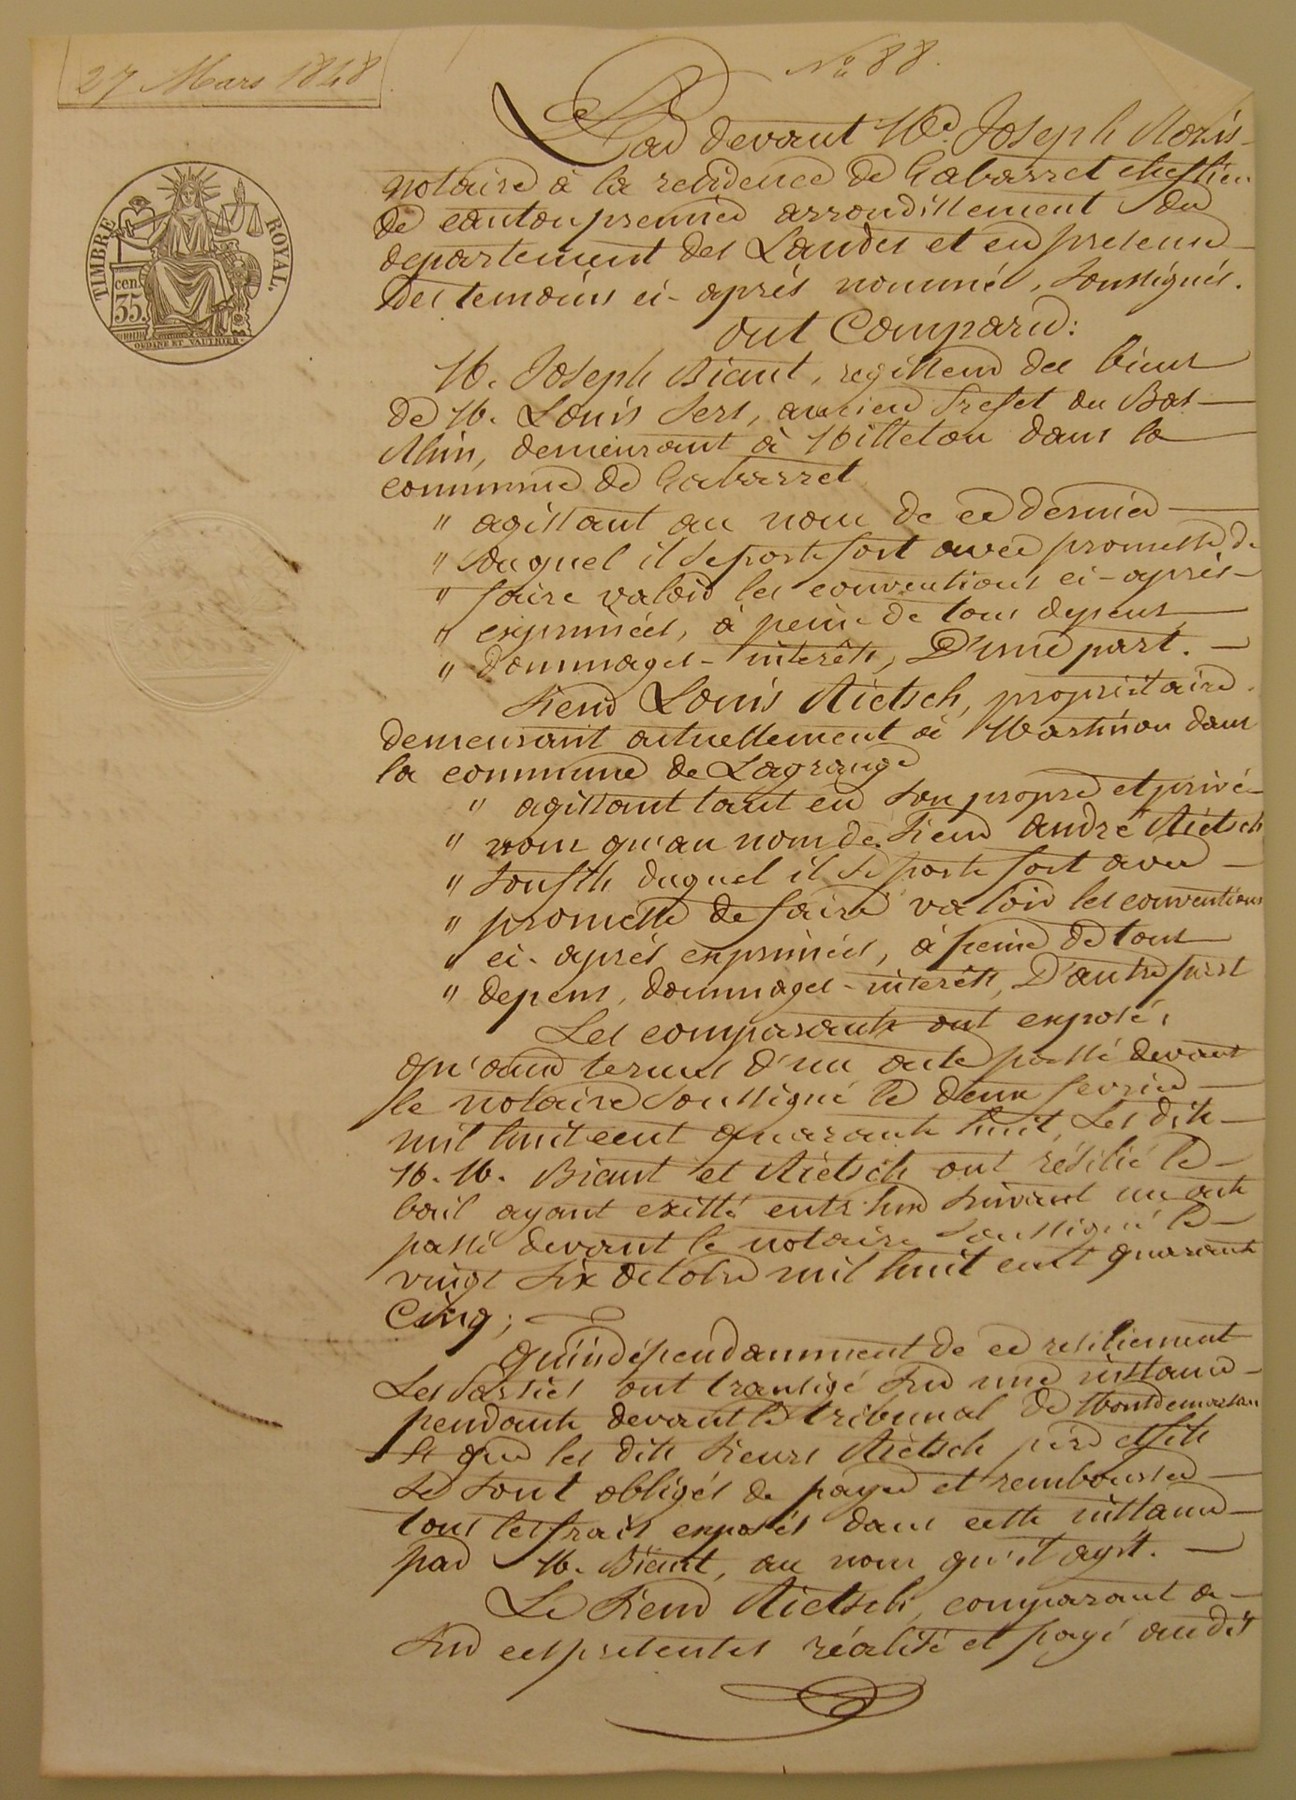 27 Mars 1848
No 88.
TIMBRE ROYAL.
cen
35.
OUDINE ET VAUTHIER
Par devant Me. Joseph
notaire à la residence de Gabarret chef lieu
de canton premier arrondissement du
departement des Landes et en presence
des temoins ci-après nommés, soussignés.
ont Comparu:
M. Joseph Biaut,regisseur des biens
de M. Louis Sers, ancien Prefet du Bas-
Rhin, demeurant à Milleton dans la
commune de Gabarret
" agissant au nom de ce dernier
" duquel il se porte fort avec promesse de
" faire valoir les conventions ci-après
" exprimées, à peine de tous depens
" dommages-interêts, D'une part.
Sieur Louis Rietsch, propriétaire
demeurant actuellement à Martinon dans
la commune de Lagrange
" agissant tant en son propre et privé
" nom qu'au nom de Sieur André Rietsch
" son fils duquel il se porte fort avec
" promesse de faire valoir les conventions
" ci-après exprimées, à peine de tous
" depens, dommages-interêts, D'autre part
Les comparants ont exposé,
qu'aux termes d'un acte passé devant
le notaire soussigné le deux fevrier
mil huit cent quarante huit, Les dits
M. M. Biaut et Rietsch ont résilié le
bail ayant existé entr'eux suivant un acte
passé devant le notaire soussigné le
vingt six octobre mil huit cent quarante
Cinq;
qu'indépendamment de ce resiliement
Les parties ont transigé sur une instance
pendante devant le tribunal de Montdemarsan
et que les dits Sieurs Rietsch père et fils
se sont obligés de payer et rembourser
tous les frais exposés dans cette instance
par M. Biaut, au nom qu'il agit.
Le Sieur Rietsch, comparant a
sur ces presentes réalisé et payé audit